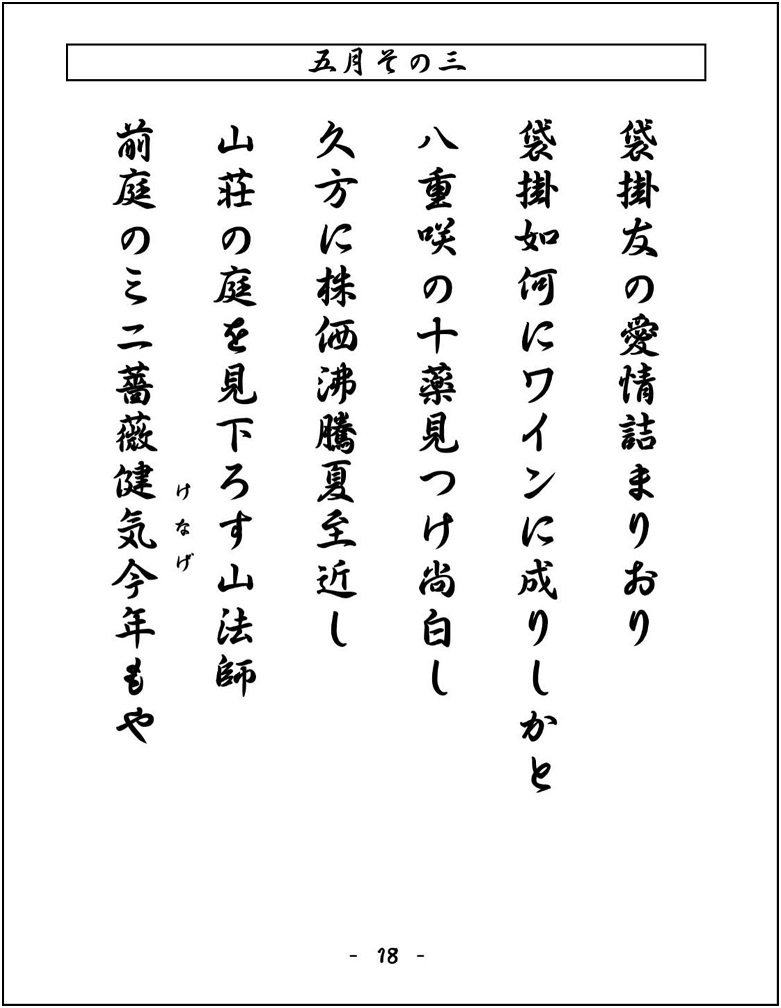 五月その三
袋掛友の愛情詰まりおり
袋掛如何にワインに成りしかと
八重咲の十薬見つけ尚白し
久方に株価沸騰夏至近し
山荘の庭を見下ろす山法師
前庭のミニ薔薇健気今年もや
けなげ
- 18 -